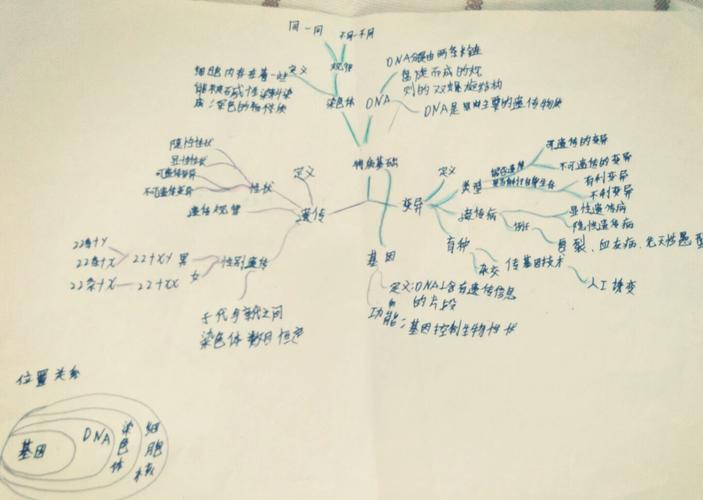 同一同
不同一不同
规律
定义
细胞内存在着一些
能被碱性染料染
成深色的物体
染色体
DNA
DNA是由两条长链
盘旋而成的规
则的双螺旋结构
DNA是主要的遗传物质
物质基础
隐性性状
显性性状
可遗传变异
不可遗传变异
性状
定义
遗传规律
遗传
22条+Y
22条+X
22+XY 男
22条+X
22+XX 女
性别遗传
子代与亲代之间
染色体数目恒定
变异
定义
类型
能否遗传
可遗传的变异
不可遗传的变异
有利变异
不利变异
遗传病
显性遗传病
隐性遗传病
例子
唇裂、血友病、先天性愚型
育种
杂交
传基因技术
人工诱变
基因
定义:DNA上含有遗传信息
的片段
功能:基因控制生物性状
位置关系
基因
DNA
染色体
细胞核